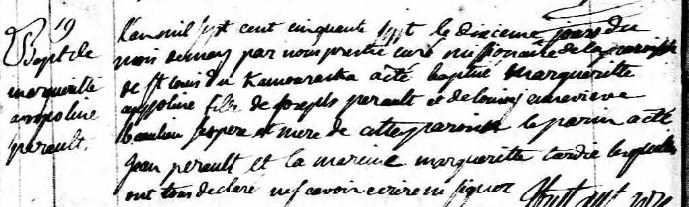 19
Bapt de
margueritte
appoline
perault.
l'an mil sept cent cinquante sept le dixieme jours du
mois de may par nous prestre curé missionaire de la paroisse
de st louis du Kamouraska a été baptisé Marguerritte
appoline fille de joseph perault et de genevieve
beaulieu ses pere et mere de cette paroisse le parin a été
jean perault et la mareine marguerritte tardif lesquels
ont tous declaré ne scavoir ecrire ni signer